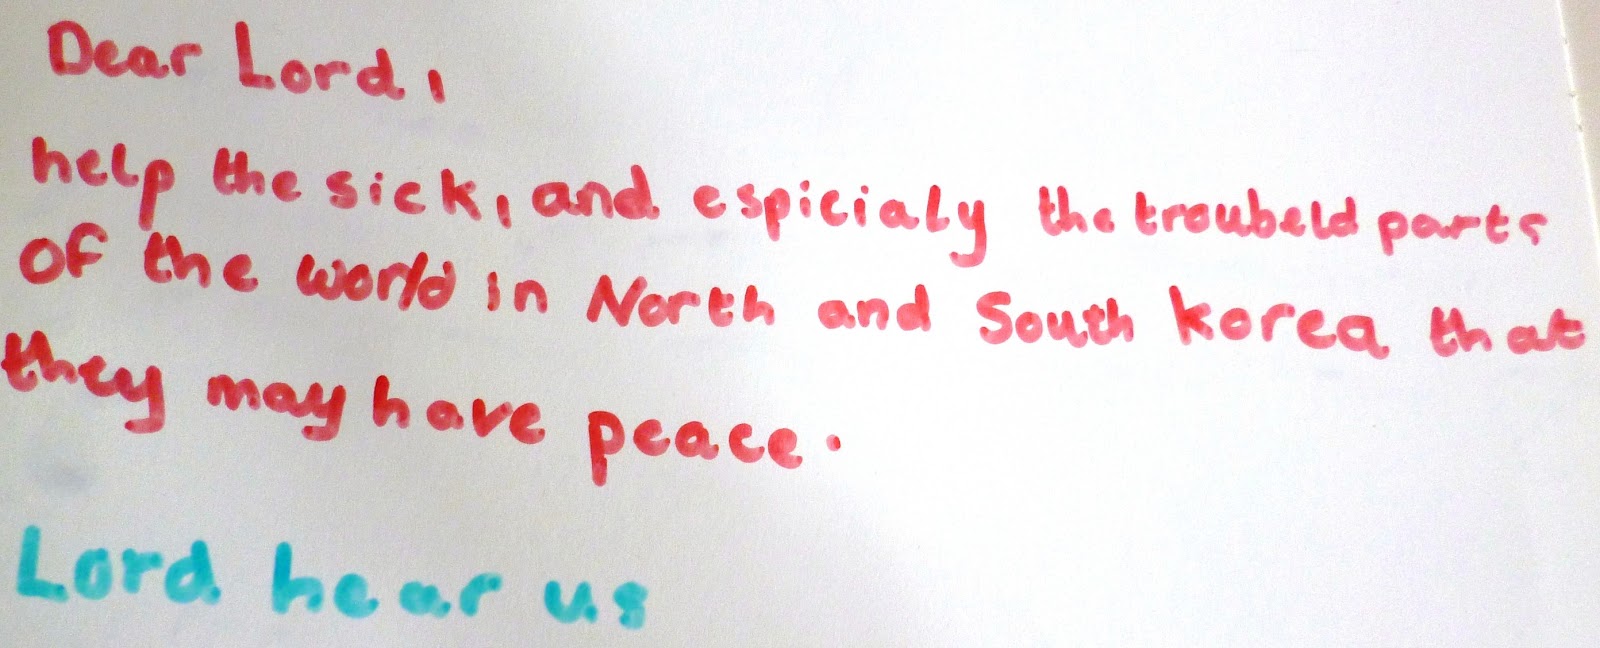 Dear Lord,
help the sick, and espicialy the troubeld parts
of the world in North and South korea that
they may have peace.
Lord hear us